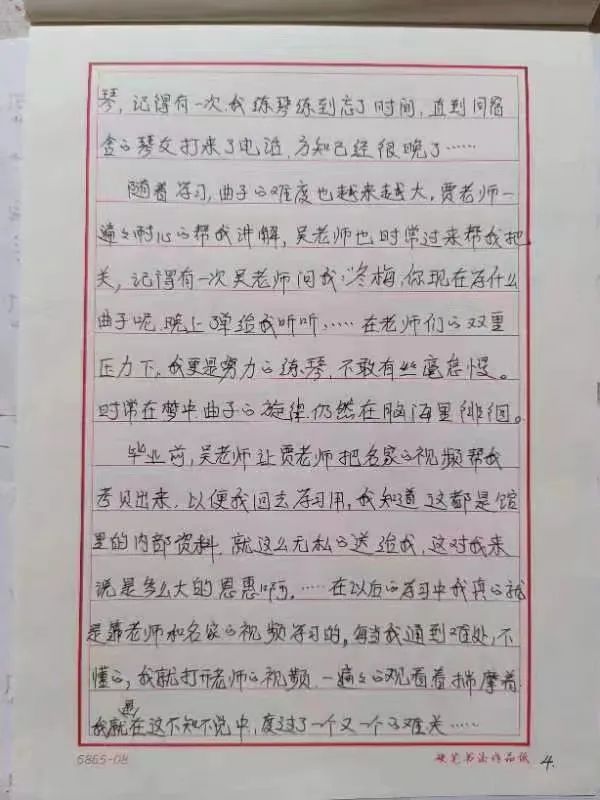 琴，记得有一次我练琴练到忘了时间，直到同宿
舍的琴友打来了电话，方知已经很晚了……
随着学习，曲子的难度也越来越大，贾老师一
遍々耐心的帮我讲解，吴老师也时常过来帮我把
关，记得有一次吴老师问我：冬梅，你现在弹什么
曲子呢，晚上弹给我听听，……在老师们的双重
压力下，我更是努力的练琴，不敢有丝毫怠慢。
时常在梦中曲子的旋律仍然在脑海里徘徊。
毕业前，吴老师让贾老师把名家的视频帮我
考贝出来，以便我回去学习用，我知道这都是馆
里的内部资料，就这么无私的送给我，这对我来
说是多么大的恩惠啊，……在以后的学习中我真的就
是靠老师和名家的视频学习的，每当我遇到难处，不
懂的，我就打开老师的视频，一遍々的观看着揣摩着
我就是在这不知不觉中，度过了一个又一个的难关……
5865-08
硬笔书法作品纸
4.